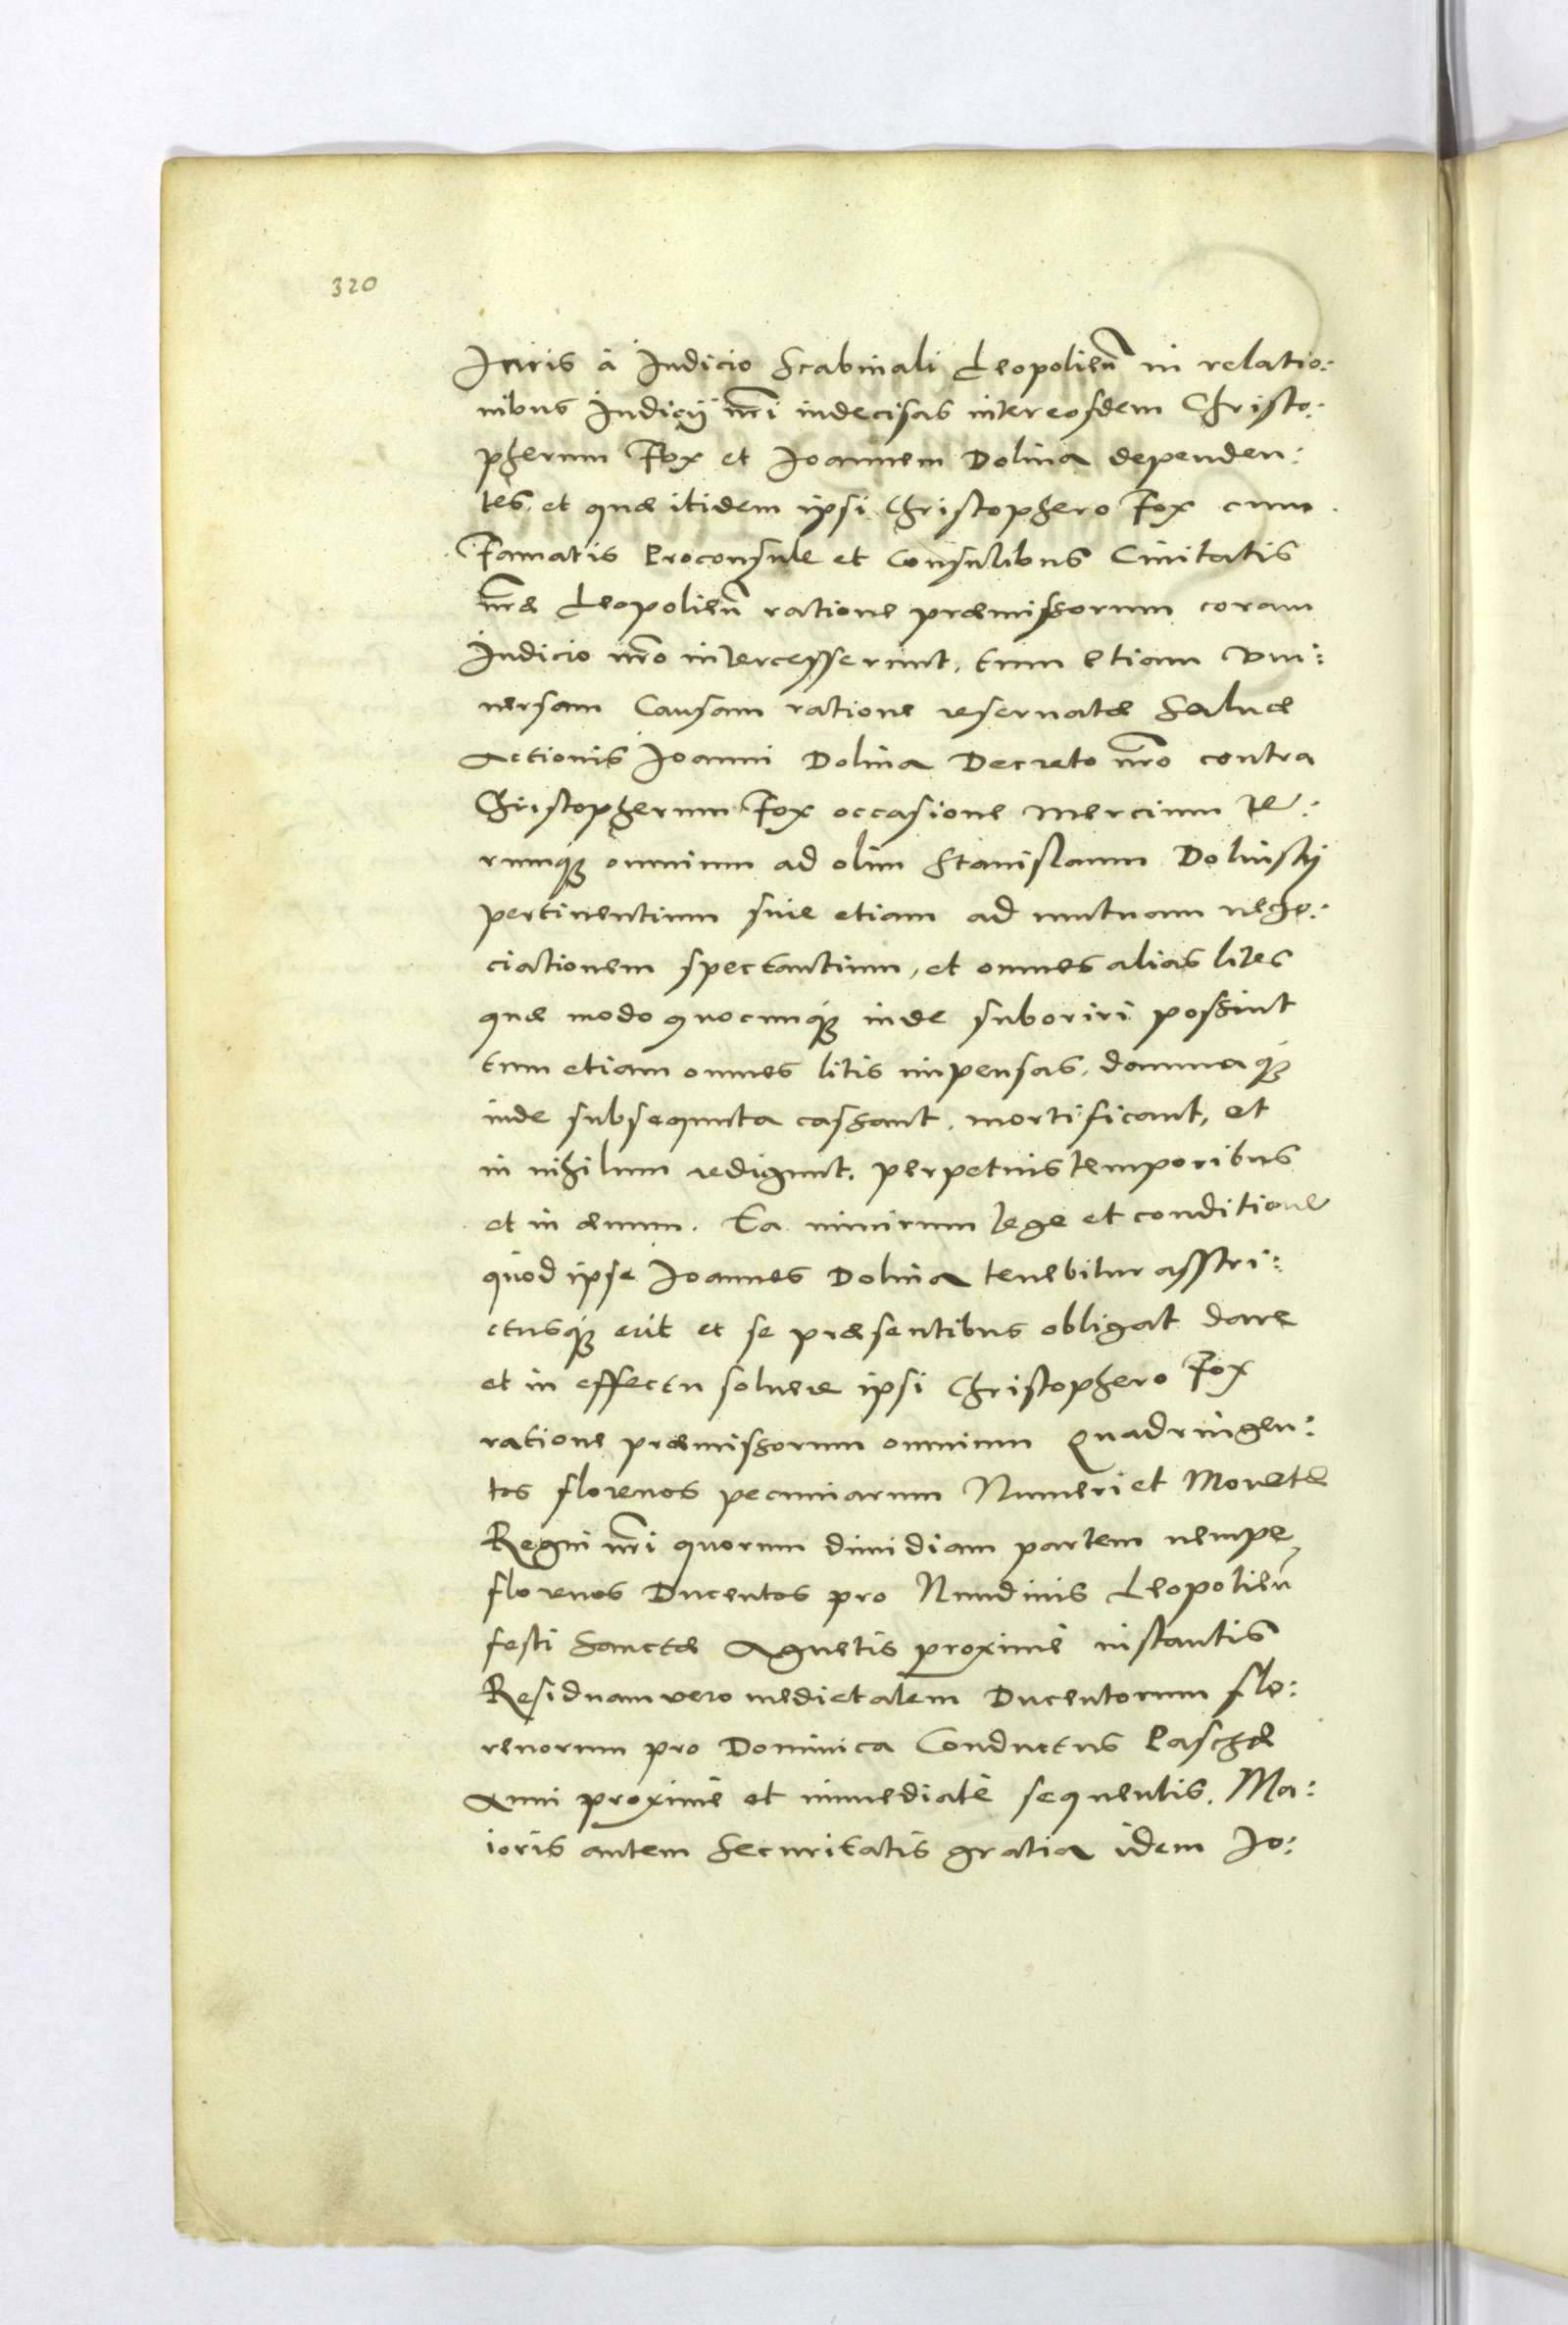 320
Iuris à Iudicio Scabinali Leopolieñ in relatio:
nibus Iudicij nr̃i indecisas inter eosdem Christo:
pherum Fox et Ioannem Dolina dependen:
tes. et quæ itidem ipsi Christophero Fox cum
Famatis Proconsule et Consulibus Ciuitatis
nr̃æ Leopolieñ ratione præmissorum coram
Iudicio nr̃o intercesserunt, tum etiam vni:
uersam Causam ratione reseruatæ Saluæ
Actionis Ioanni Dolina Decreto nr̃o contra
Christopherum Fox occasione mercium re:
rumq3 omnium ad olim Stanislaum Dolinskij
pertinentium siue etiam ad mutuam nego:
ciationem spectantium, et omnes alias lites
quæ modo quocunq3 inde suboriri possint
tum etiam omnes litis impensas. damnaq3
inde subsequuta cassant, mortificant, et
in nihilum redigunt. perpetuis temporibus
et in æuum. Ea nimirum lege et conditione
quod ipse Ioannes Dolina tenebitur asstri:
ctusq3 erit et se præsentibus obligat dare
et in effectu soluere ipsi Christophero Fox
ratione præmissorum omnium Quadringen:
tos florenos pecuniarum Numeri et Monetæ
Regni nr̃i quorum dimidiam partem nempe
florenos Ducentos pro Nundinis Leopolieñ
festi Sanctæ Agnetis proximè instantis
Residuam vero medietatem Ducentorum flo:
renorum pro Dominica Conductus Paschæ
Anni proximè et immediatè sequentis. Ma:
ioris autem Securitatis gratia idem Io: